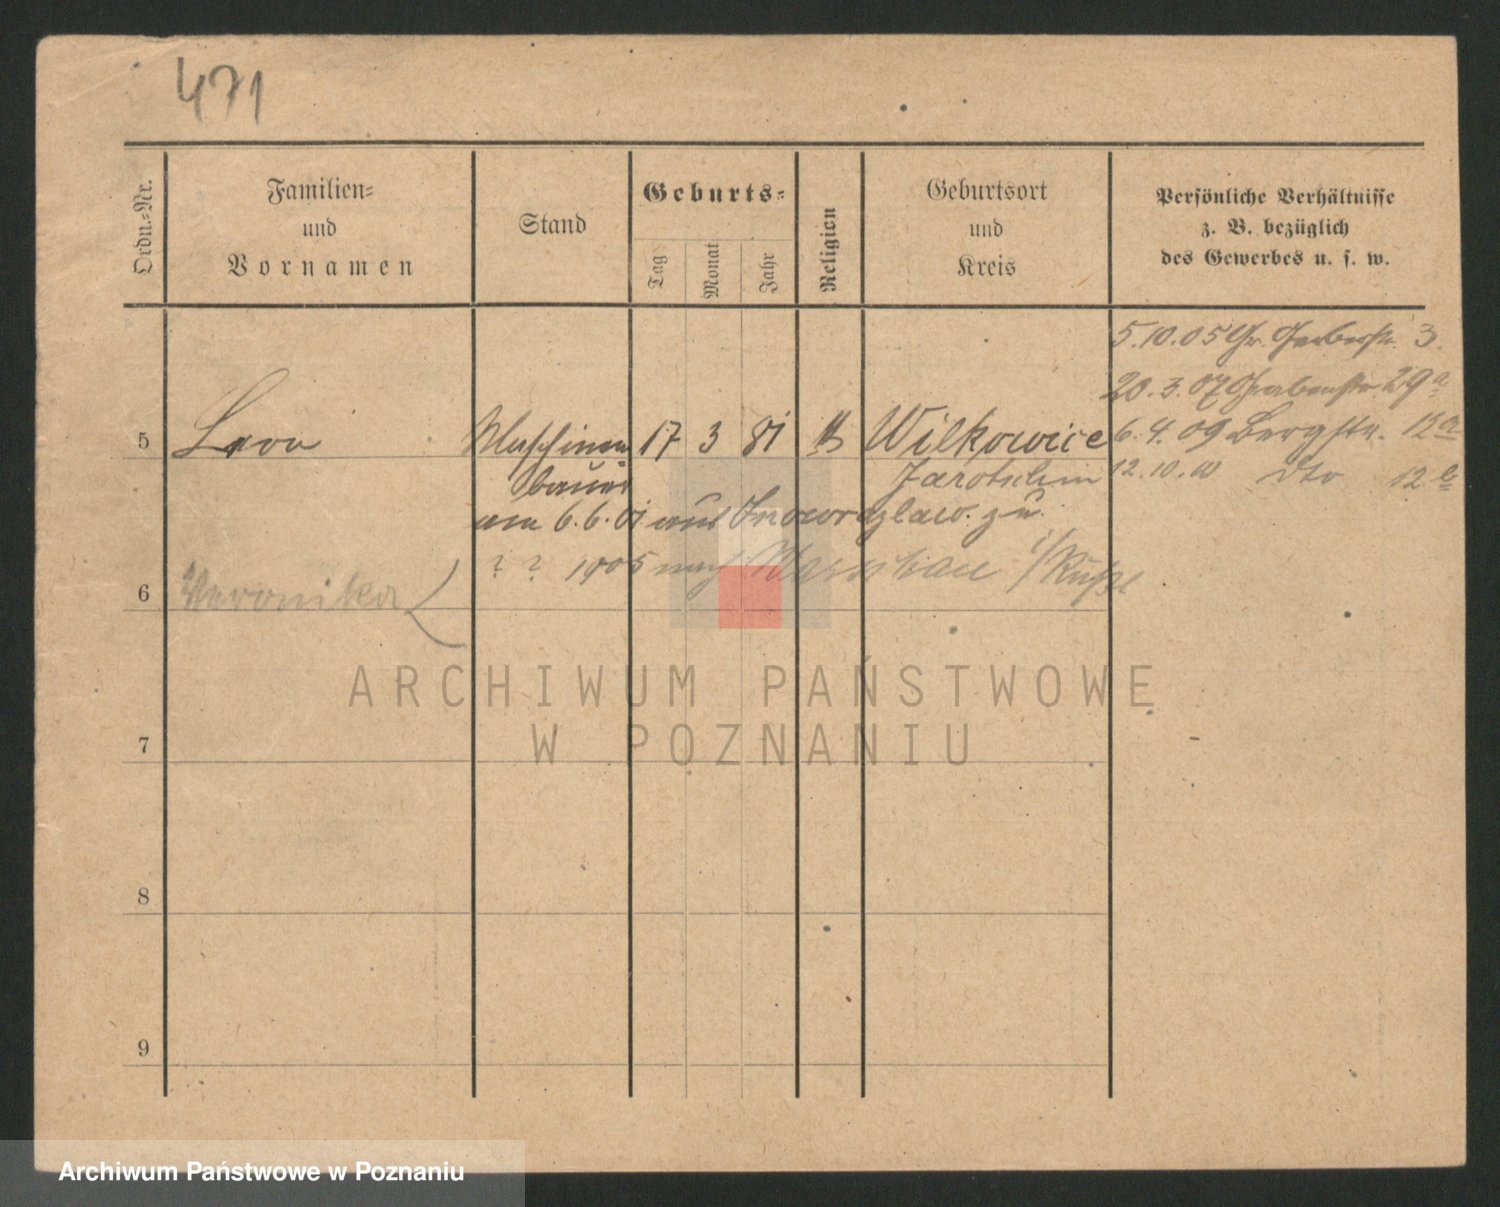 471
Ordn.=Nr.
Familien=
und
Vornamen
Stand
Geburts=
Tag
Monat
Jahr
Religion
Geburtsort
und
Kreis
Persönliche Verhältnisse
z. B. bezüglich
des Gewerbes u. s. w.
5.10.05 Gr. Gerberstr. 3.
20.3.07 Grabenstr. 29a
5 Leon Maschinen 17 3 81 Wilkowice 6.4.09 Bergstr. 12a
bauer Jarotschin 12.10. dto 12b
am 6.6.01 aus Inowrazlaw. zu.
? ? 1905 nach Warschau i/Rußl
6 Veronika
7
8
9
ARCHIWUM PAŃSTWOWE
W POZNANIU
Archiwum Państwowe w Poznaniu